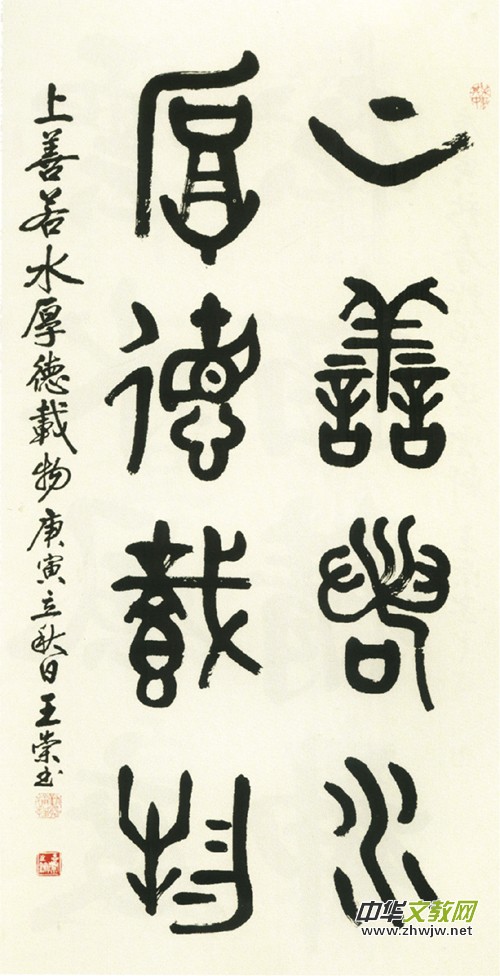 上善若水
厚德載物
上善若水厚德載物庚寅立秋日王崇书
中华文教网
www.zhwjw.net